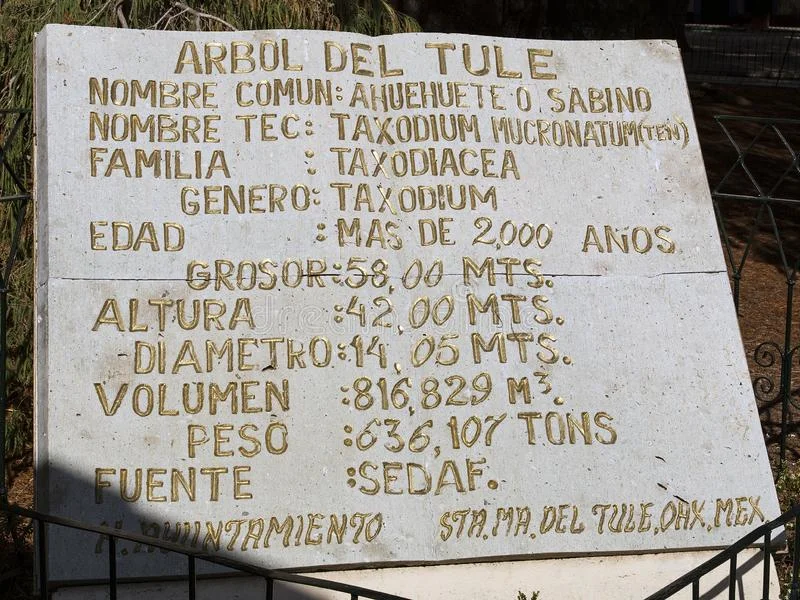 ARBOL DEL TULE
NOMBRE COMUN: AHUEHUETE O SABINO
NOMBRE TEC: TAXODIUM MUCRONATUM(TEN)
FAMILIA : TAXODIACEA
GENERO: TAXODIUM
EDAD : MAS DE 2,000 AÑOS
GROSOR: 58,00 MTS.
ALTURA : 42,00 MTS.
DIAMETRO: 14,05 MTS.
VOLUMEN : 816,829 M³.
PESO : 636,107 TONS
FUENTE : SEDAF.
H. AYUNTAMIENTO STA. MA. DEL TULE, OAX, MEX
dreamstime